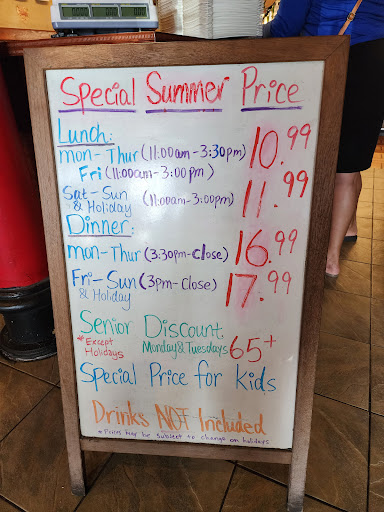 Special Summer Price
Lunch:
mon-Thur (11:00am-3:30pm) 10.99
Fri (11:00am-3:00pm)
Sat-Sun (11:00am-3:00pm) 11.99
& Holiday
Dinner:
mon-Thur (3:30pm-Close) 16.99
Fri-Sun (3pm-Close) 17.99
& Holiday
Senior Discount
*Except Holidays Monday & Tuesdays 65+
Special Price for kids
Drinks NOT Included
*Prices May be subject to change on holidays